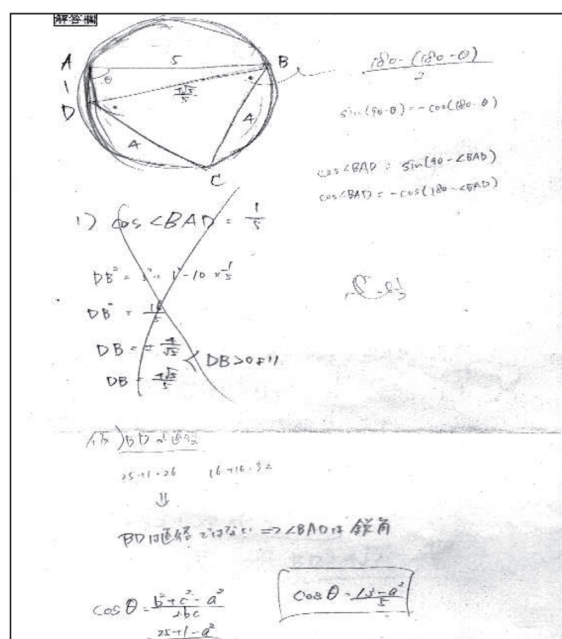 解答欄
A 5 B
1 θ
4√5/5
D
4 4
C
180-(180-θ)/2
sin(90-θ)=-cos(180-θ)
cos∠BAD = sin(90-∠BAD)
cos∠BAD = -cos(180-∠BAD)
1) cos∠BAD = 1/5
DB² = 5² + 1² - 10 × 1/5
DB² = 16/5
DB = ± 4/√5
DB = 4√5/5
DB>0より
仮)BDが直径
25+1=26 16+16=32
⇓
BDは直径ではない ⇒ ∠BADは鋭角
cosθ = b²+c²-a²/2bc
25+1-a²
cosθ = 13-a²/5